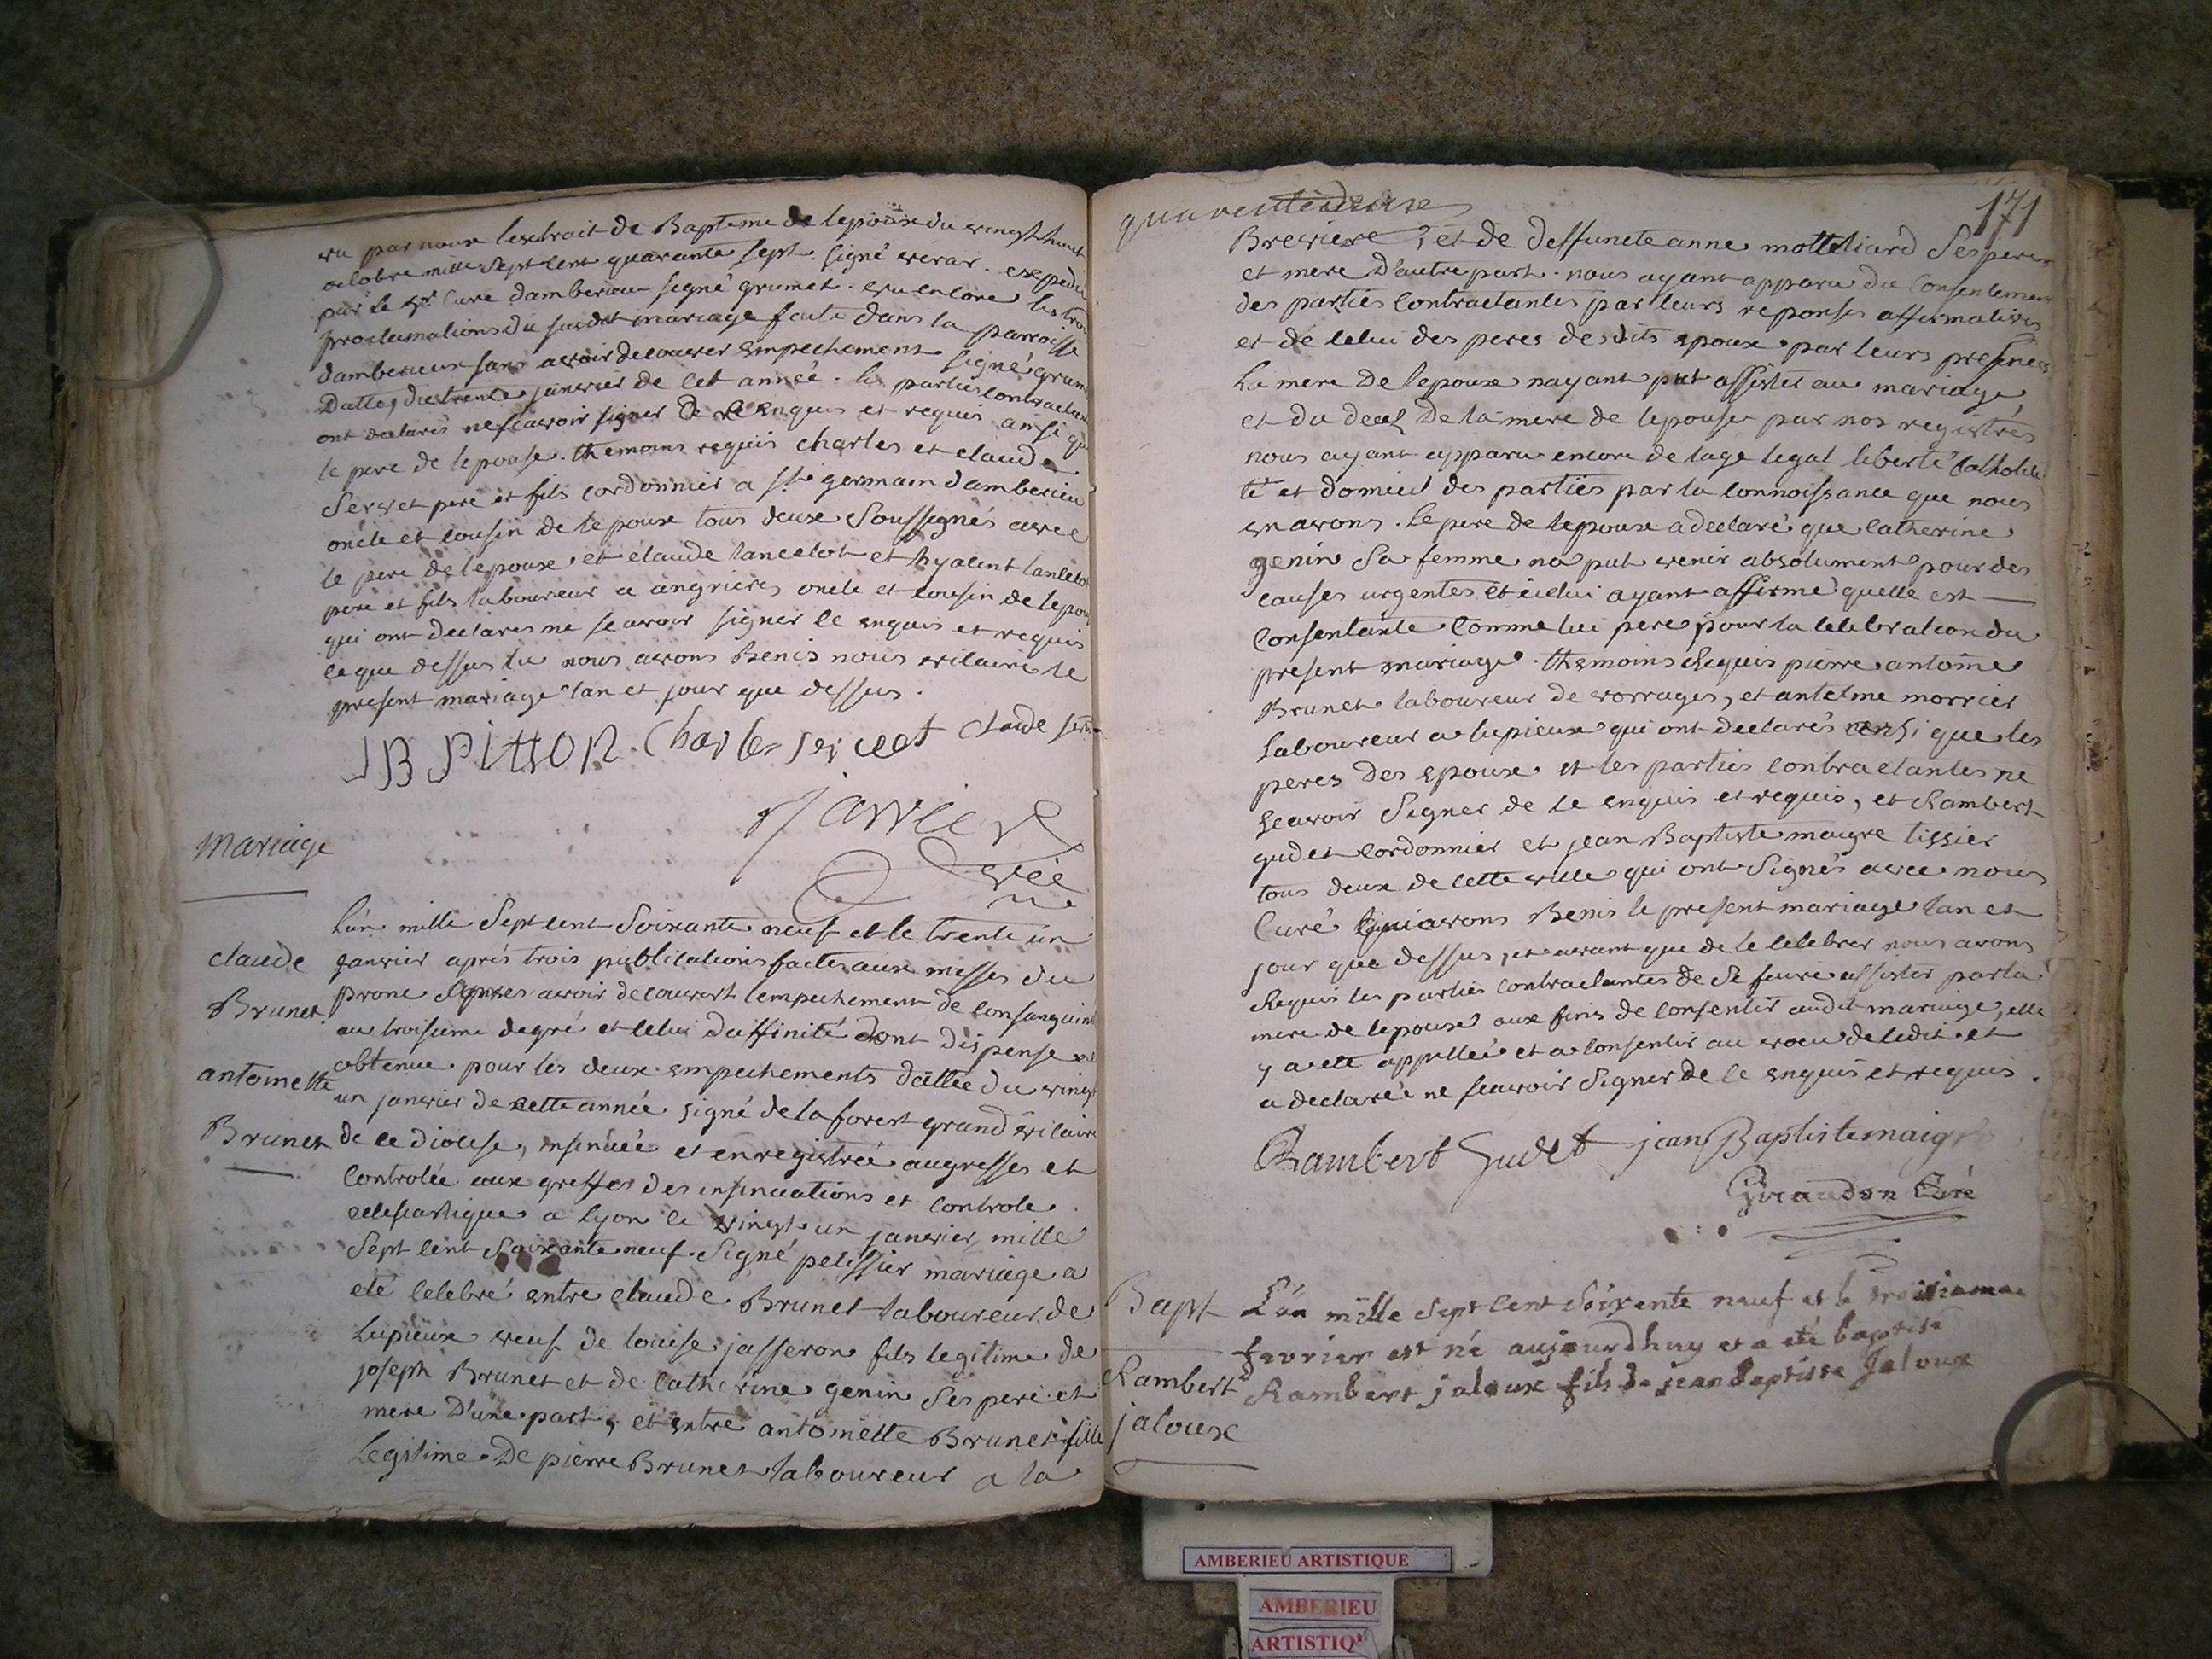 vu par nous lextrait de Bapteme de lepouse du vingt huit
octobre mille sept cent quarante sept. signé verar. expedié
par le Sr Curé damberieu signé grumet. vu encore les trois
proclamations du susdit mariage faite dans la parroisse
damberieux sans avoir decouver empechement signé grum
Datteé du trente janvier de cet anneé. les parties contractan
ont declarés ne scavoir signer de ce enquis et requis ainsi que
le pere de lepouse. themoins requis charles et claude
Servet pere et fils cordonnier a St germain damberieu
oncle et cousin de lepoux tous deux Soussignés avec
le pere de lepoux et claude lancelot et hyacint lancelot
pere et fils laboureur a angrieres oncle et cousin de lepou
qui ont declares ne scavoir signer de ce enquis et requis
ce que dessus lu nous avons Benis nous vicaire le
present mariage lan et jour que dessus.
JB Pitton Charles servet claude ser
vicé
mariage
claude
Brunet.
antoinette
Brunet
L'an mille Sept cent Soixante neuf et le trente un
janvier aprés trois publications faites aux messes du
prone apres avoir decouvert lempechement de consanguini
au troisieme degré et celui daffinité dont dispense
obtenue pour les deux empechements dattée du vingt
un janvier de cette année signé de la forest grand vicaire
de ce diocese, insinuée et enregistrée au greffes et
Controlée aux greffes des insinuations et controle
eclesiastique a lyon le vingt un janvier mille
Sept cent Soixante neuf. Signé pelissier mariage a
eté celebré entre claude Brunet laboureur de
Lupieux veuf de louise jasseron fils legitime de
joseph Brunet et de Catherine genin Ses pere et
mere D'une part, et entre antoinette Brunet fille
Legitime De pierre Brunet laboureur a la
171
Breviere, et de deffuncte anne mottetiard Ses pere
et mere D'autre part. nous ayant apparu du Consentement
des parties Contractantes par leurs reponses affirmatives
et de celui des peres desdits epoux par leurs presences
La mere de lepoux nayant put assister au mariage,
et du deces De la mere de lepouse par nos registres
nous ayant apparu encore de lage legal liberté Catholici
té et domicil des parties par la Connoissance que nous
en avons. le pere de lepoux a declaré que Catherine
genin Sa femme na put venir absolument pour des
causes urgentes et icelui ayant affirmé quelle est
Consentante Comme lui pere pour la celebration du
present mariage. themoins Requis pierre antoine
Brunet laboureur de vorrages, et antelme morrier
Laboureur a lupieux qui ont declarés ainsi que les
peres des epoux et les parties Contractantes ne
Scavoir Signer de ce enquis et requis, et Rambert
gudet cordonnier et jean Baptiste maigre tissier
tous deux de cette ville qui ont Signés avec nous
Curé qui avons Benis le present mariage lan et
jour que dessus, et avant que de le celebrer nous avons
Requis les parties Contractantes de se faire assister par la
mere de lepoux aux fins de consentir audit mariage, elle
y a eté appellée et a consentir au voeu de ledit et
a declareé ne scavoir Signer de ce enquis et requis.
Rambert Gudet jean Baptiste maigre
Giraudon Curé
Bapt
Rambert
jaloux
L'an mille sept cent soixente neuf et le troisiemme
fevrier est né aujourdhuy et a eté baptise
Rambert jaloux fils de jean baptiste Jaloux
AMBERIEU ARTISTIQUE
AMBERIEU
ARTISTIQ